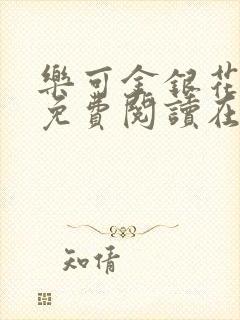 樂可金銀花
免費閱讀在
知情